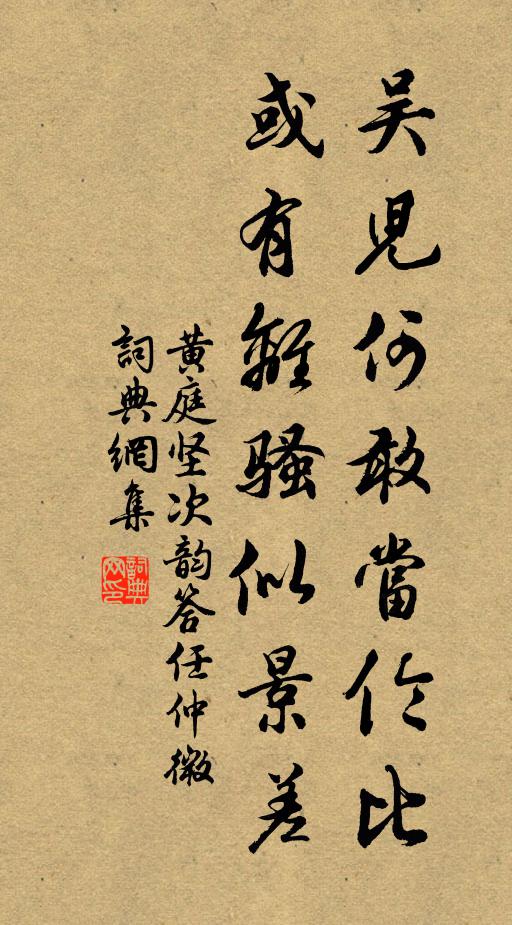 吴兒何敢當伦比
或有離骚似景差
黄庭坚次韵答任仲微
詞典網集
詞典网印